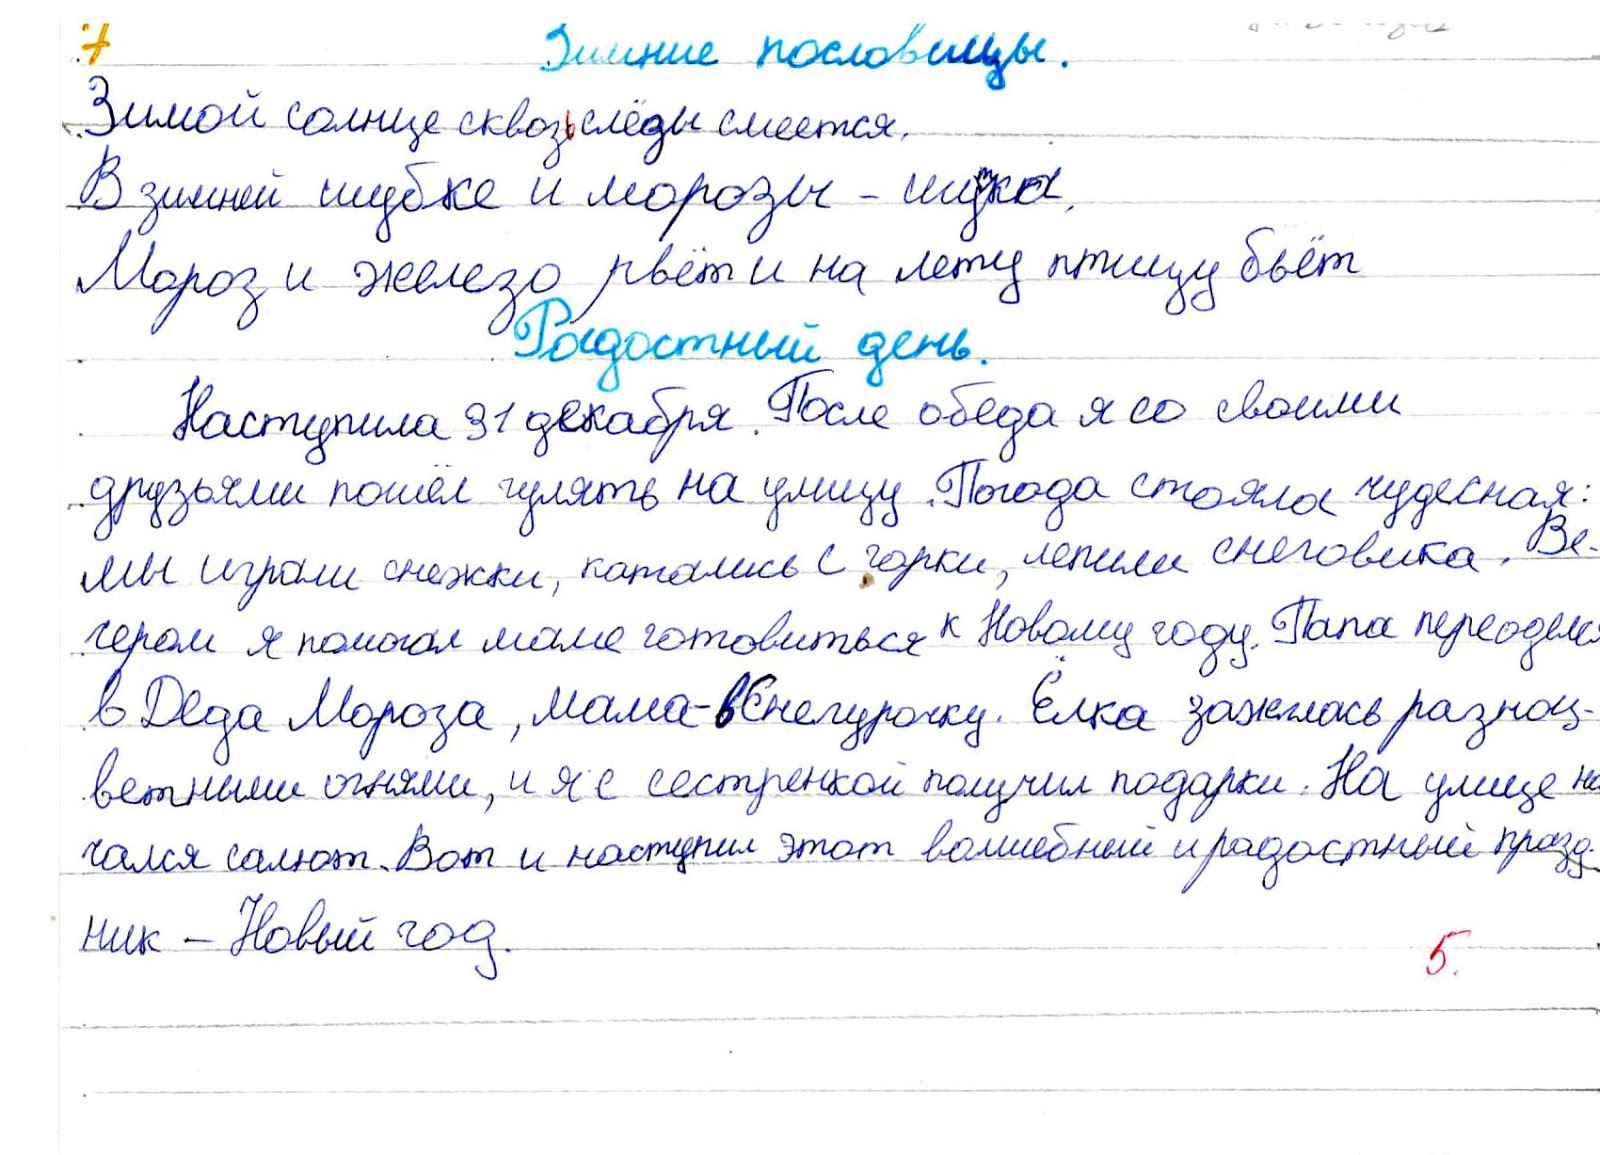 7
Зимние пословицы.
Зимой солнце сквозь слёзы смеется.
В зимней шубке и морозы - шутка.
Мороз и железо рвёт и на лету птицу бьёт
Радостный день.
Наступила 31 декабря. После обеда я со своими
друзьями пошёл гулять на улицу. Погода стояла чудесная:
мы играли снежки, катались с горки, лепили снеговика. Ве-
чером я помогал маме готовиться к Новому году. Папа переоделся
в Деда Мороза, мама - в Снегурочку. Ёлка зажглась разноц-
ветными огнями, и я с сестренкой получил подарки. На улице на
чался салют. Вот и наступил этот волшебный и радостный празд-
ник – Новый год.
5.